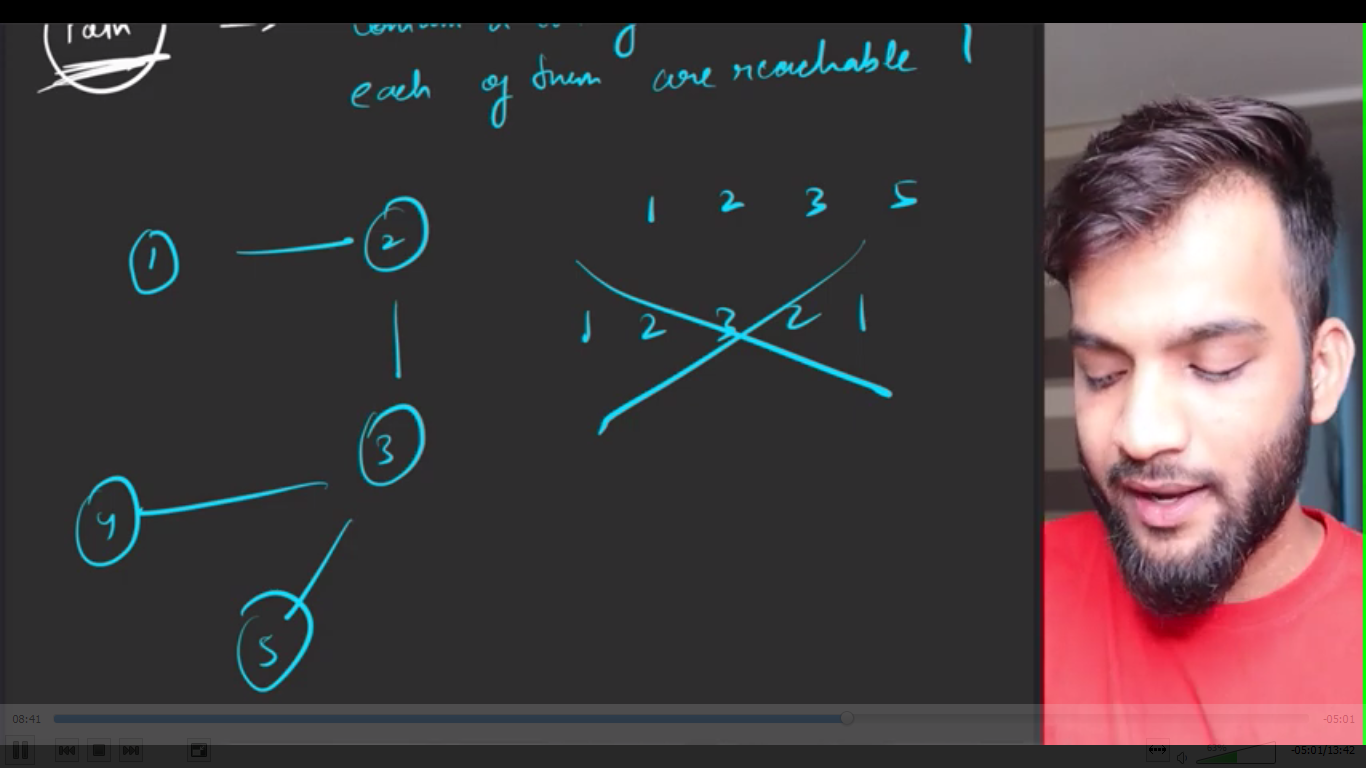 Path
each of them are reachable
1 2 3 5
1 2
1 2 3 2 1
3
4
5
08:41 -05:01
63% -05:01/13:42